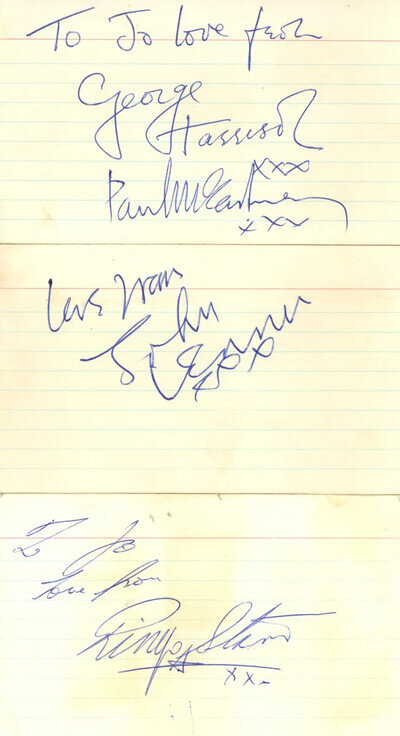 To Jo love from
George
Harrison
xxx
Paul McCartney
xxx
love from
John
Lennon
xox
To Jo
love from
Ringo Starr
xx